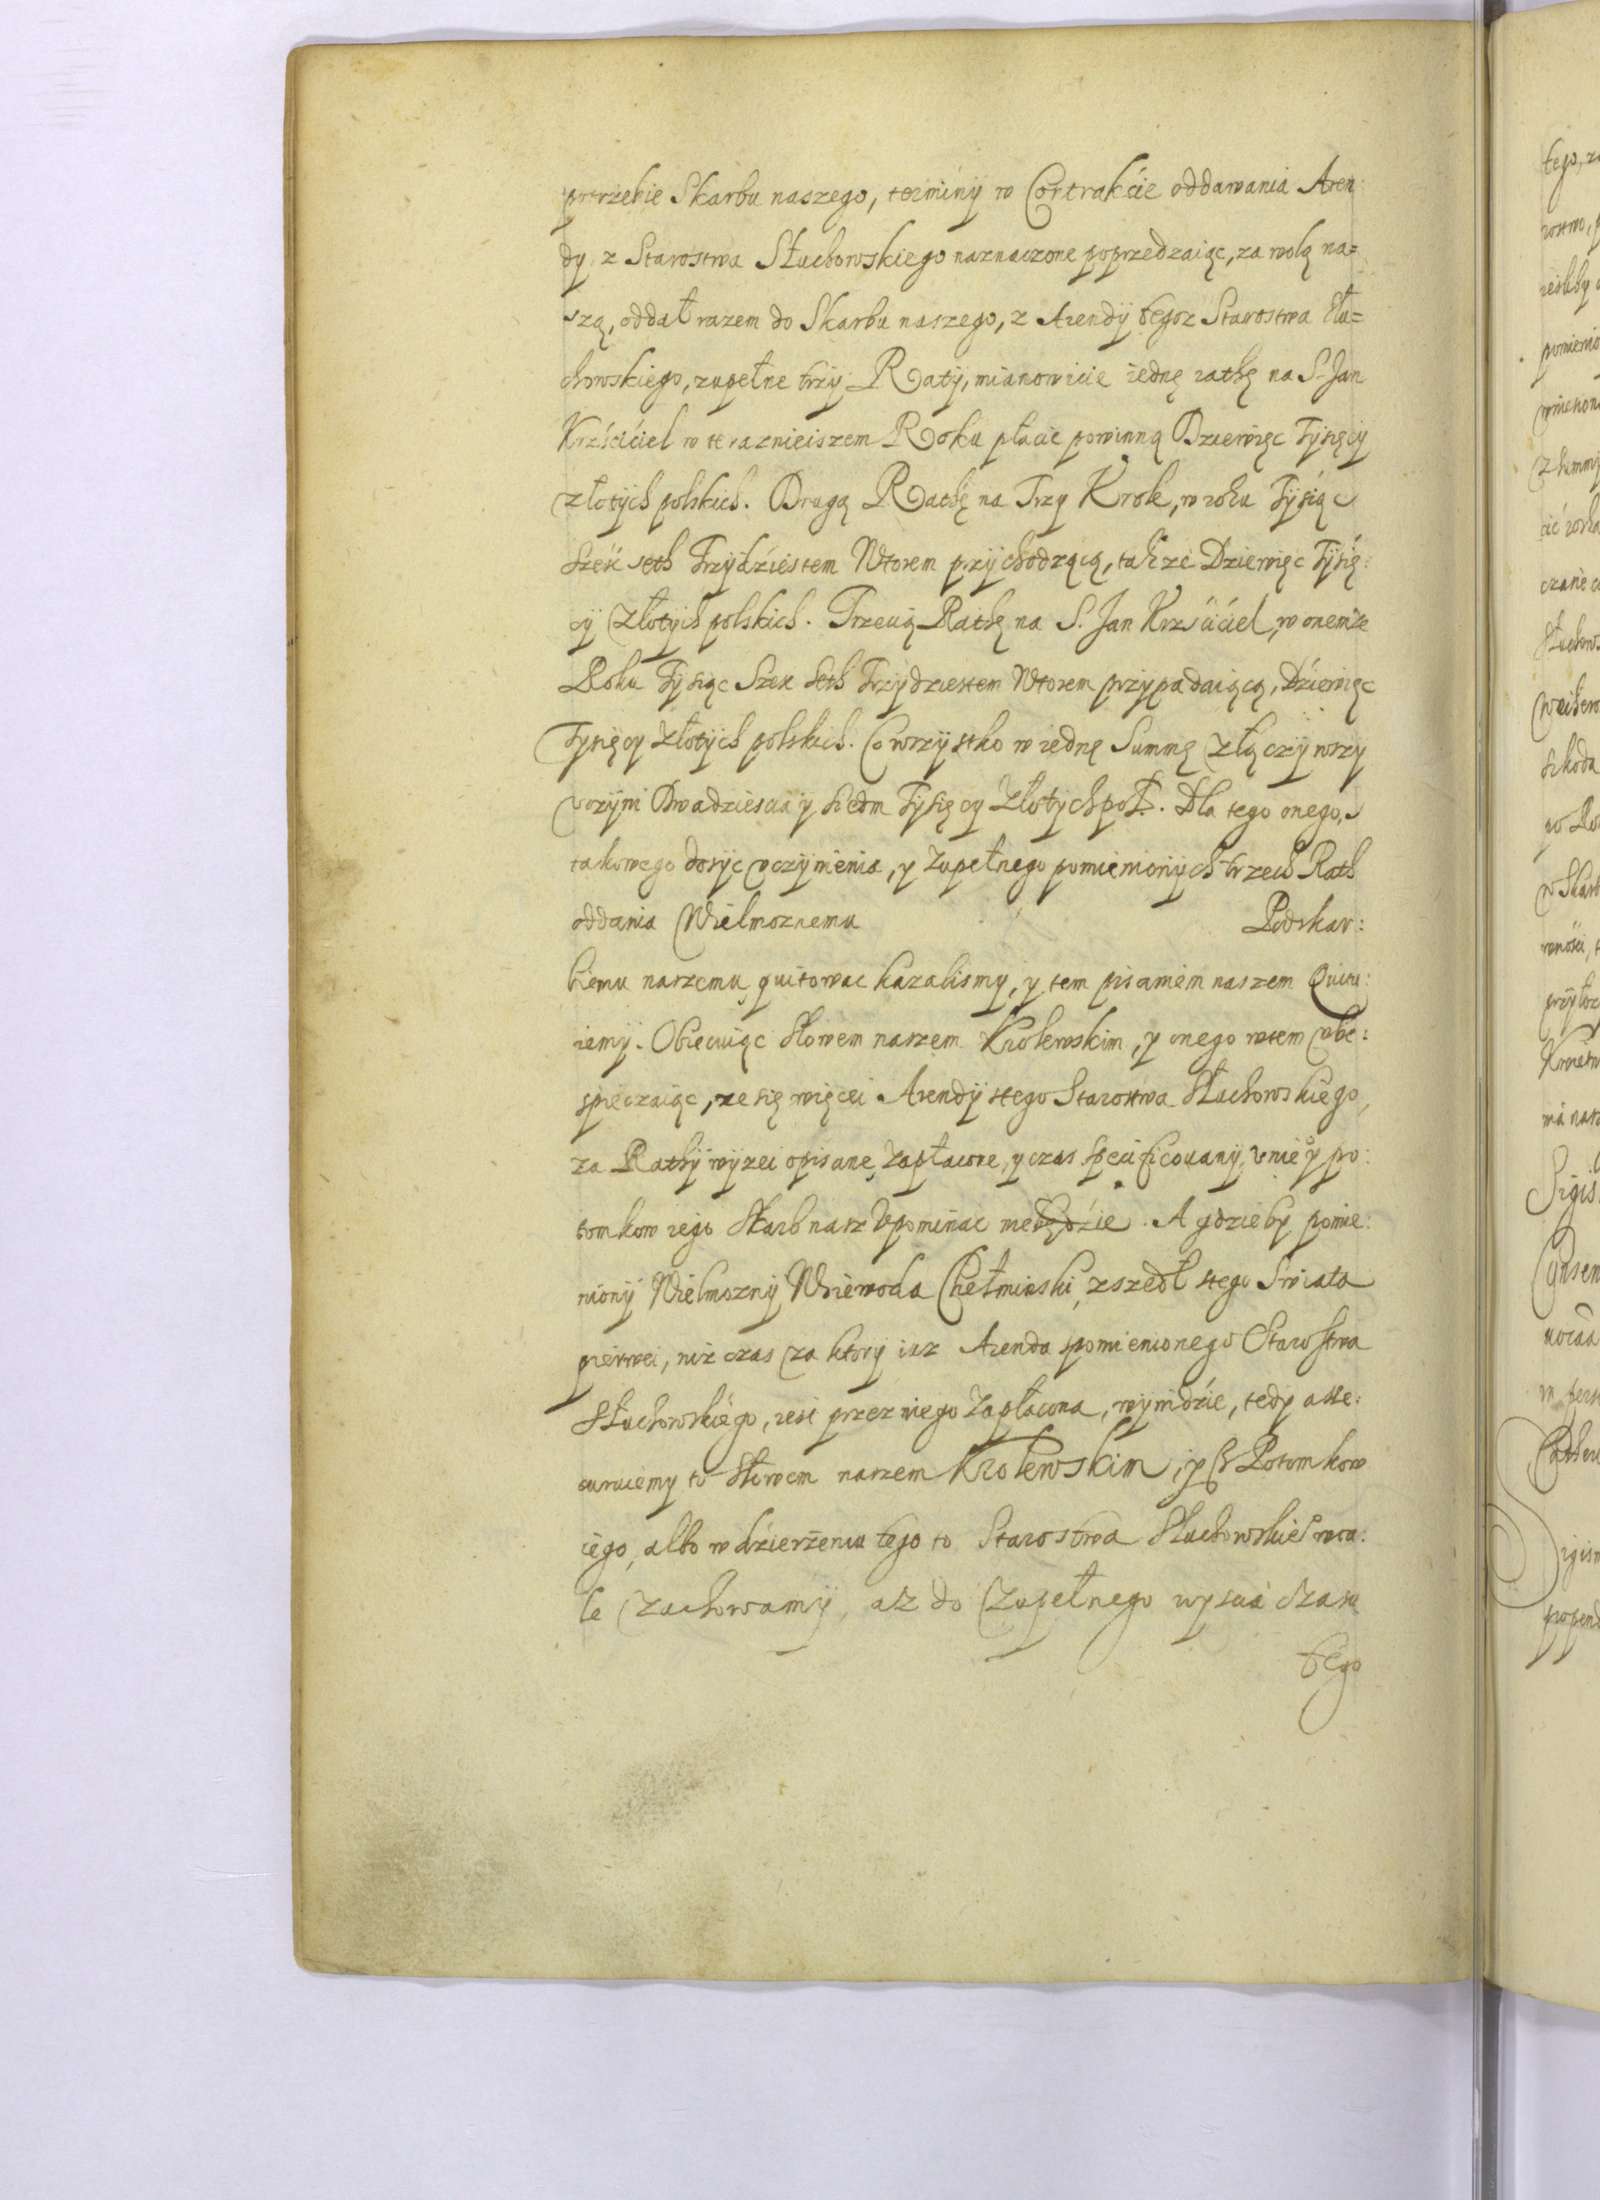 potrzebie Skarbu naszego, terminy w Contrakcie oddawania Aren
dy z Starostwa Słuchowskiego naznaczone poprzedzaiąc, za wolą na=
szą, oddał razem do Skarbu naszego, z Arendy tegoż Starostwa Słu=
chowskiego, zupełne trzy Raty, mianowicie iednę rathę na S. Jan
Krzściciel w teraznieiszem Roku płacic powinną Dziewięc Tysięcy
złotych polskich. Drugą Rathę na Trzy Krole, w roku Tysiąc
Szeć seth Trzydziestem Wtorem przychodzącą, takze Dziewięc Tysię:
cy złotych polskich. Trzecią Rathę na S. Jan Krzściciel, w onemże
Roku Tysiąc Szeć Seth Trzydziestem Wtorem przypadaiącą, Dziewięc
Tysięcy złotych polskich. Co wszystko w iednę Summę złączywszy
vczyni Dwadziescia y siedm Tysięcy złotych pol. Dla tego onego, z
takowego dosyc vczynienia, y zupełnego pomienionych trzech Rath
oddania Wielmoznemu Podskar:
biemu naszemu quitowac kazalismy, y tem pisaniem naszem Quitu:
iemy. Obiecuiąc Słowem naszem Krolewskim, y onego wtem vbe:
spieczaiąc, ze się więcei Arendy stego Starostwa Słuchowskiego,
za Rathy wyzei opisane, zapłacone, y czas specificouany, v nieº y po:
tomkow iego Skarb nasz Vpominac niebędzie. A gdzieby pomie:
niony Wielmozny Woiewoda Chełminski, zszedł stego Swiata
pierwei, niż czas za ktory iuz Arenda spomienionego Starostwa
Słuchowskiego, iest przez niego zapłacona, wynidzie, tedy asse:
curuiemy to Słowem naszem Krolewskim, iz Potomkow
iego, albo w dzierżeniu tego to Starostwa Słuchowskieº wca:
le zachowamy, asz do zupełnego wyscia czasu
tego